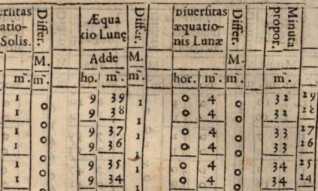 Æqua
tio Lunę
Adde
ho. m̃.
Differ.
M.
m̃.
Diuersitas
æquatio-
nis Lunæ
hor. m̃.
Differ.
M.
m̃.
Minuta
propor.
m̃.
Differ.
M.
m̃.
ersitas
atio-
Solis.
m̃.
1 0 9 39 1 0 4 0 32 19
1 9 38 0 4 32 18
1 0 9 37 1 0 4 0 33 17
1 9 36 0 4 33 16
1 0 9 35 1 0 4 0 34 15
1 9 34 0 4 34 14